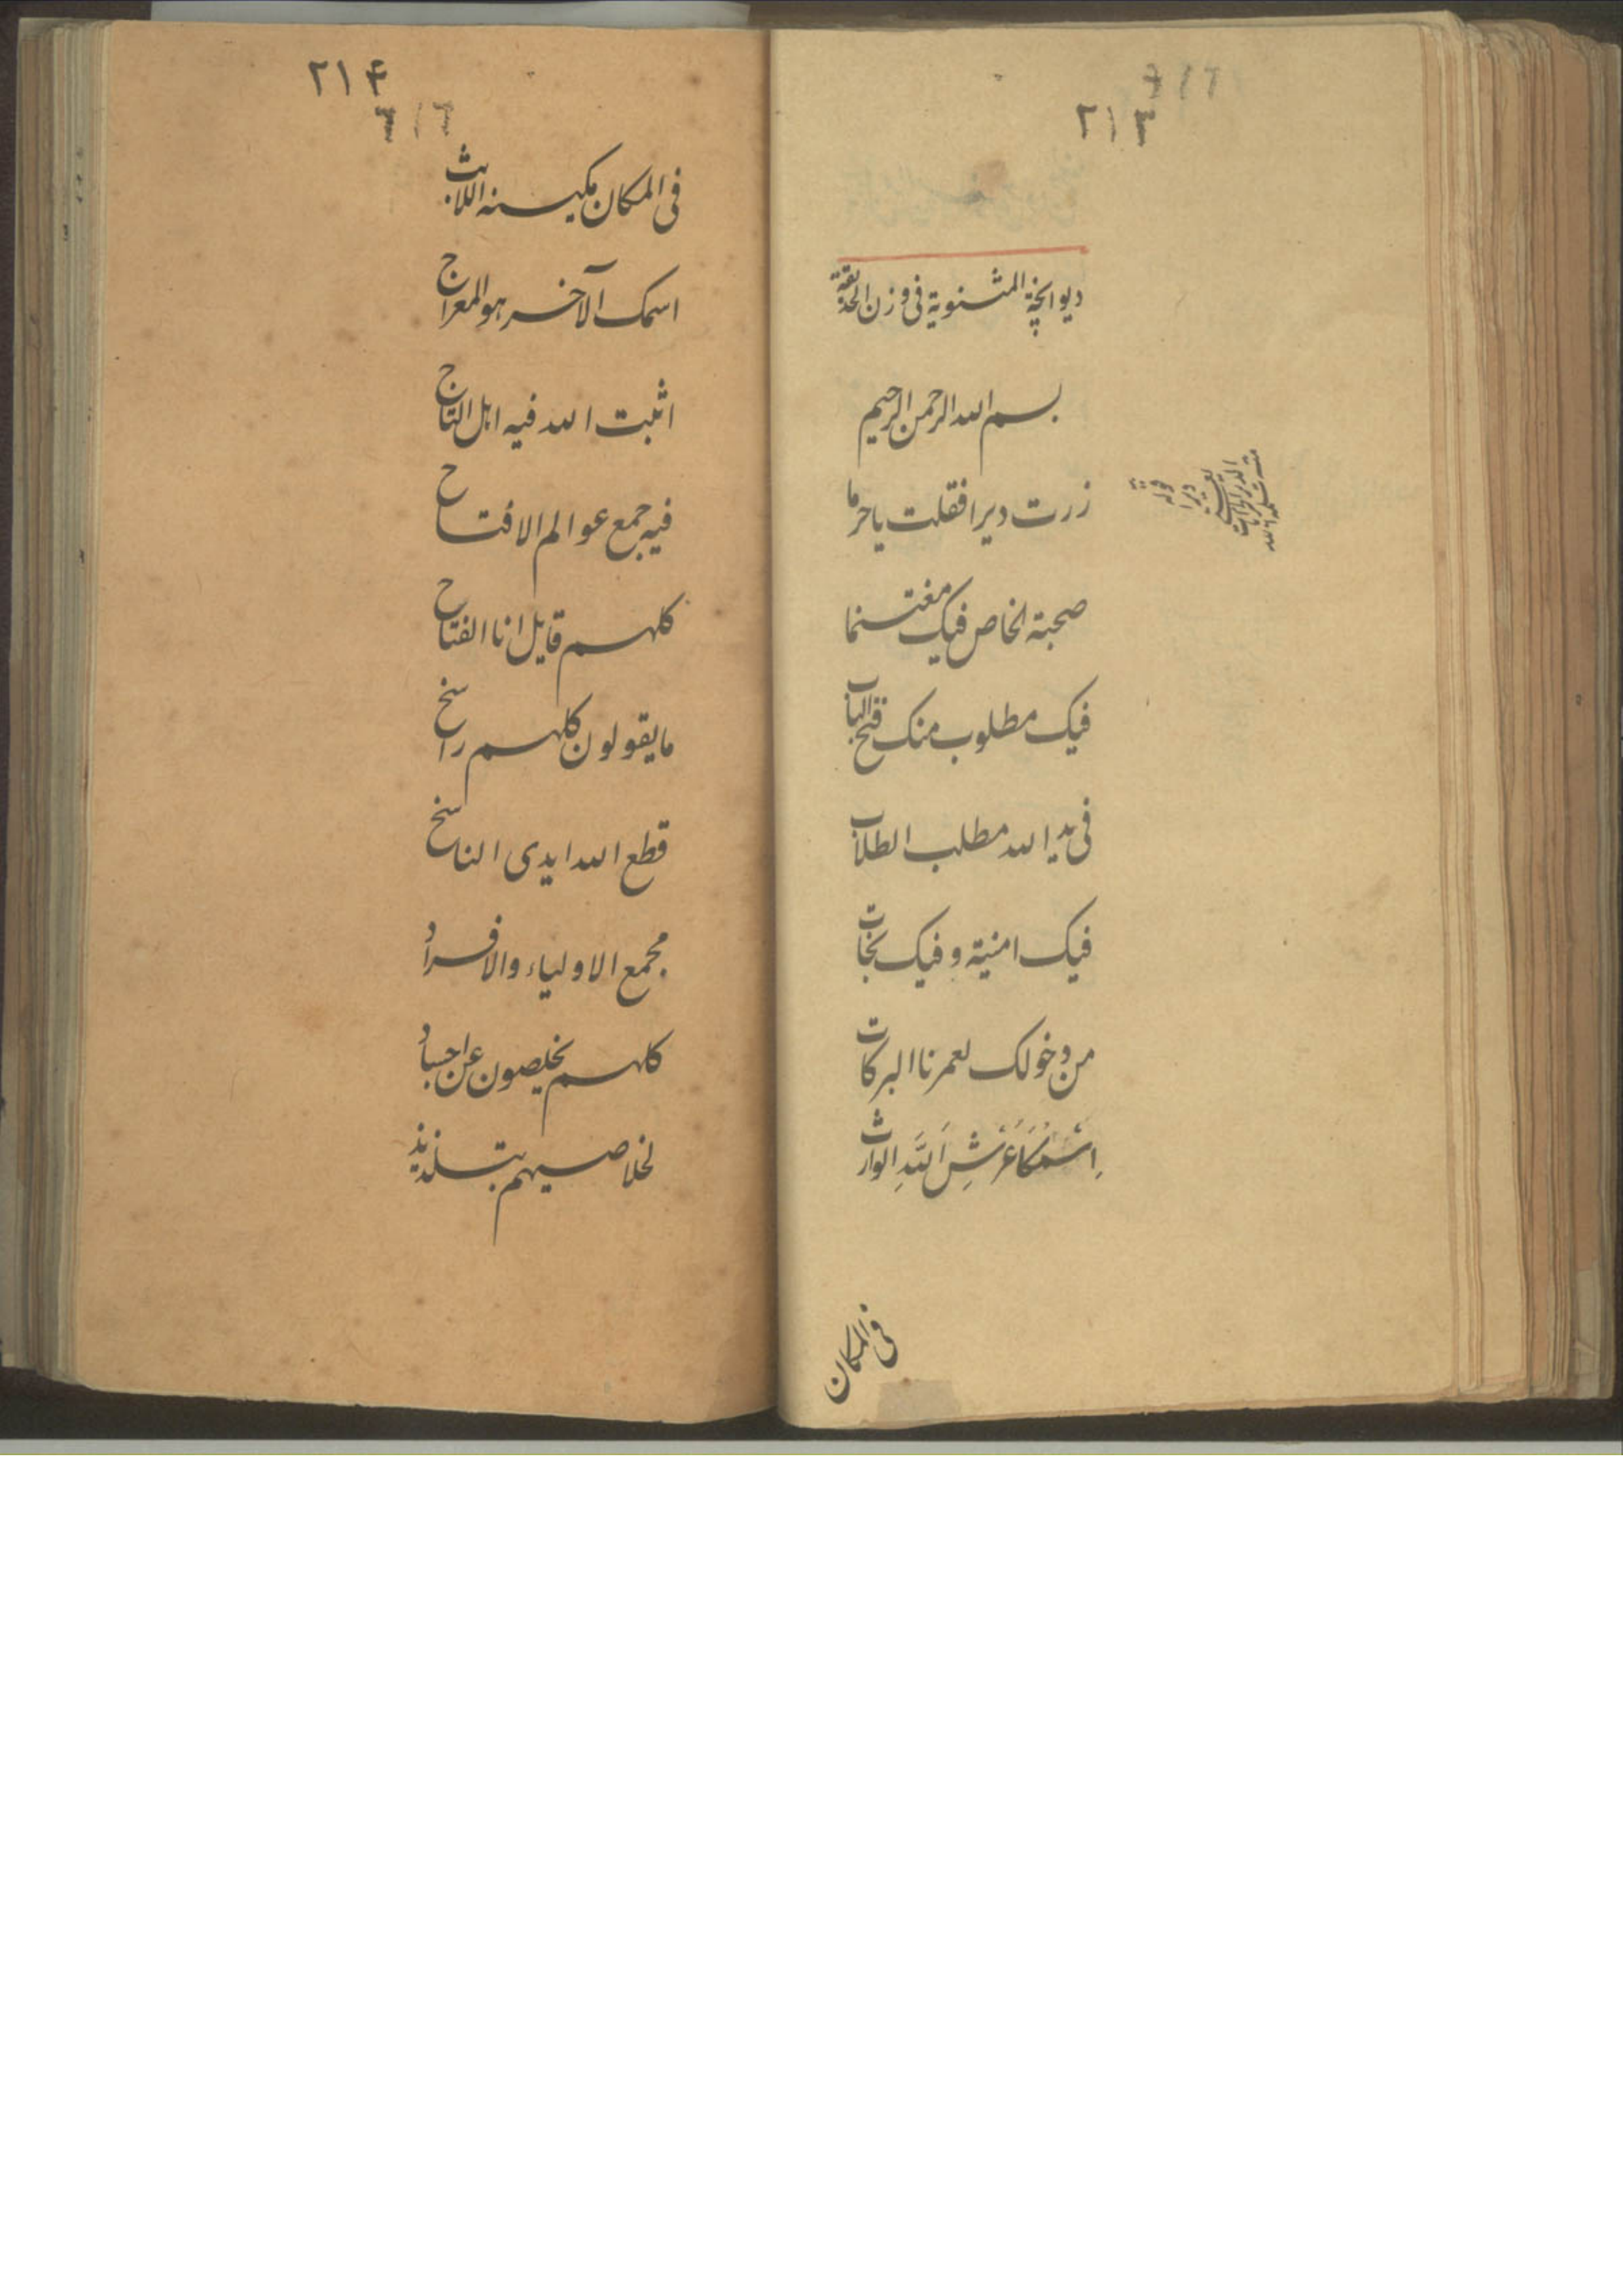 ٢١٣
ديوانچۀ المثنوية فى وزن الحديقة
بسم الله الرحمن الرحيم
زرت ديرا فقلت يا حرما
صحبة الخاص فيك مغتنما
فيك مطلوب منك فتح الباب
فى يد الله مطلب الطلاب
فيك امنية وفيك نجات
من دخولك لعمرنا البركات
اِسْمُكَ عَرْشِ اَللَّهِ الوارث
فى المكان
٢١۴
فى المكان مكينه اللابث
اسمك الآخر هو المعراج
اثبت الله فيه اهل التاج
فيه جمع عوالم الافتاح
كلهم قايل انا الفتاح
ما يقولون كلهم راسخ
قطع الله ايدى الناسخ
مجمع الاولياء والافراد
كلهم يخلصون عن اجساد
لخلاصيهم بتلذيذ